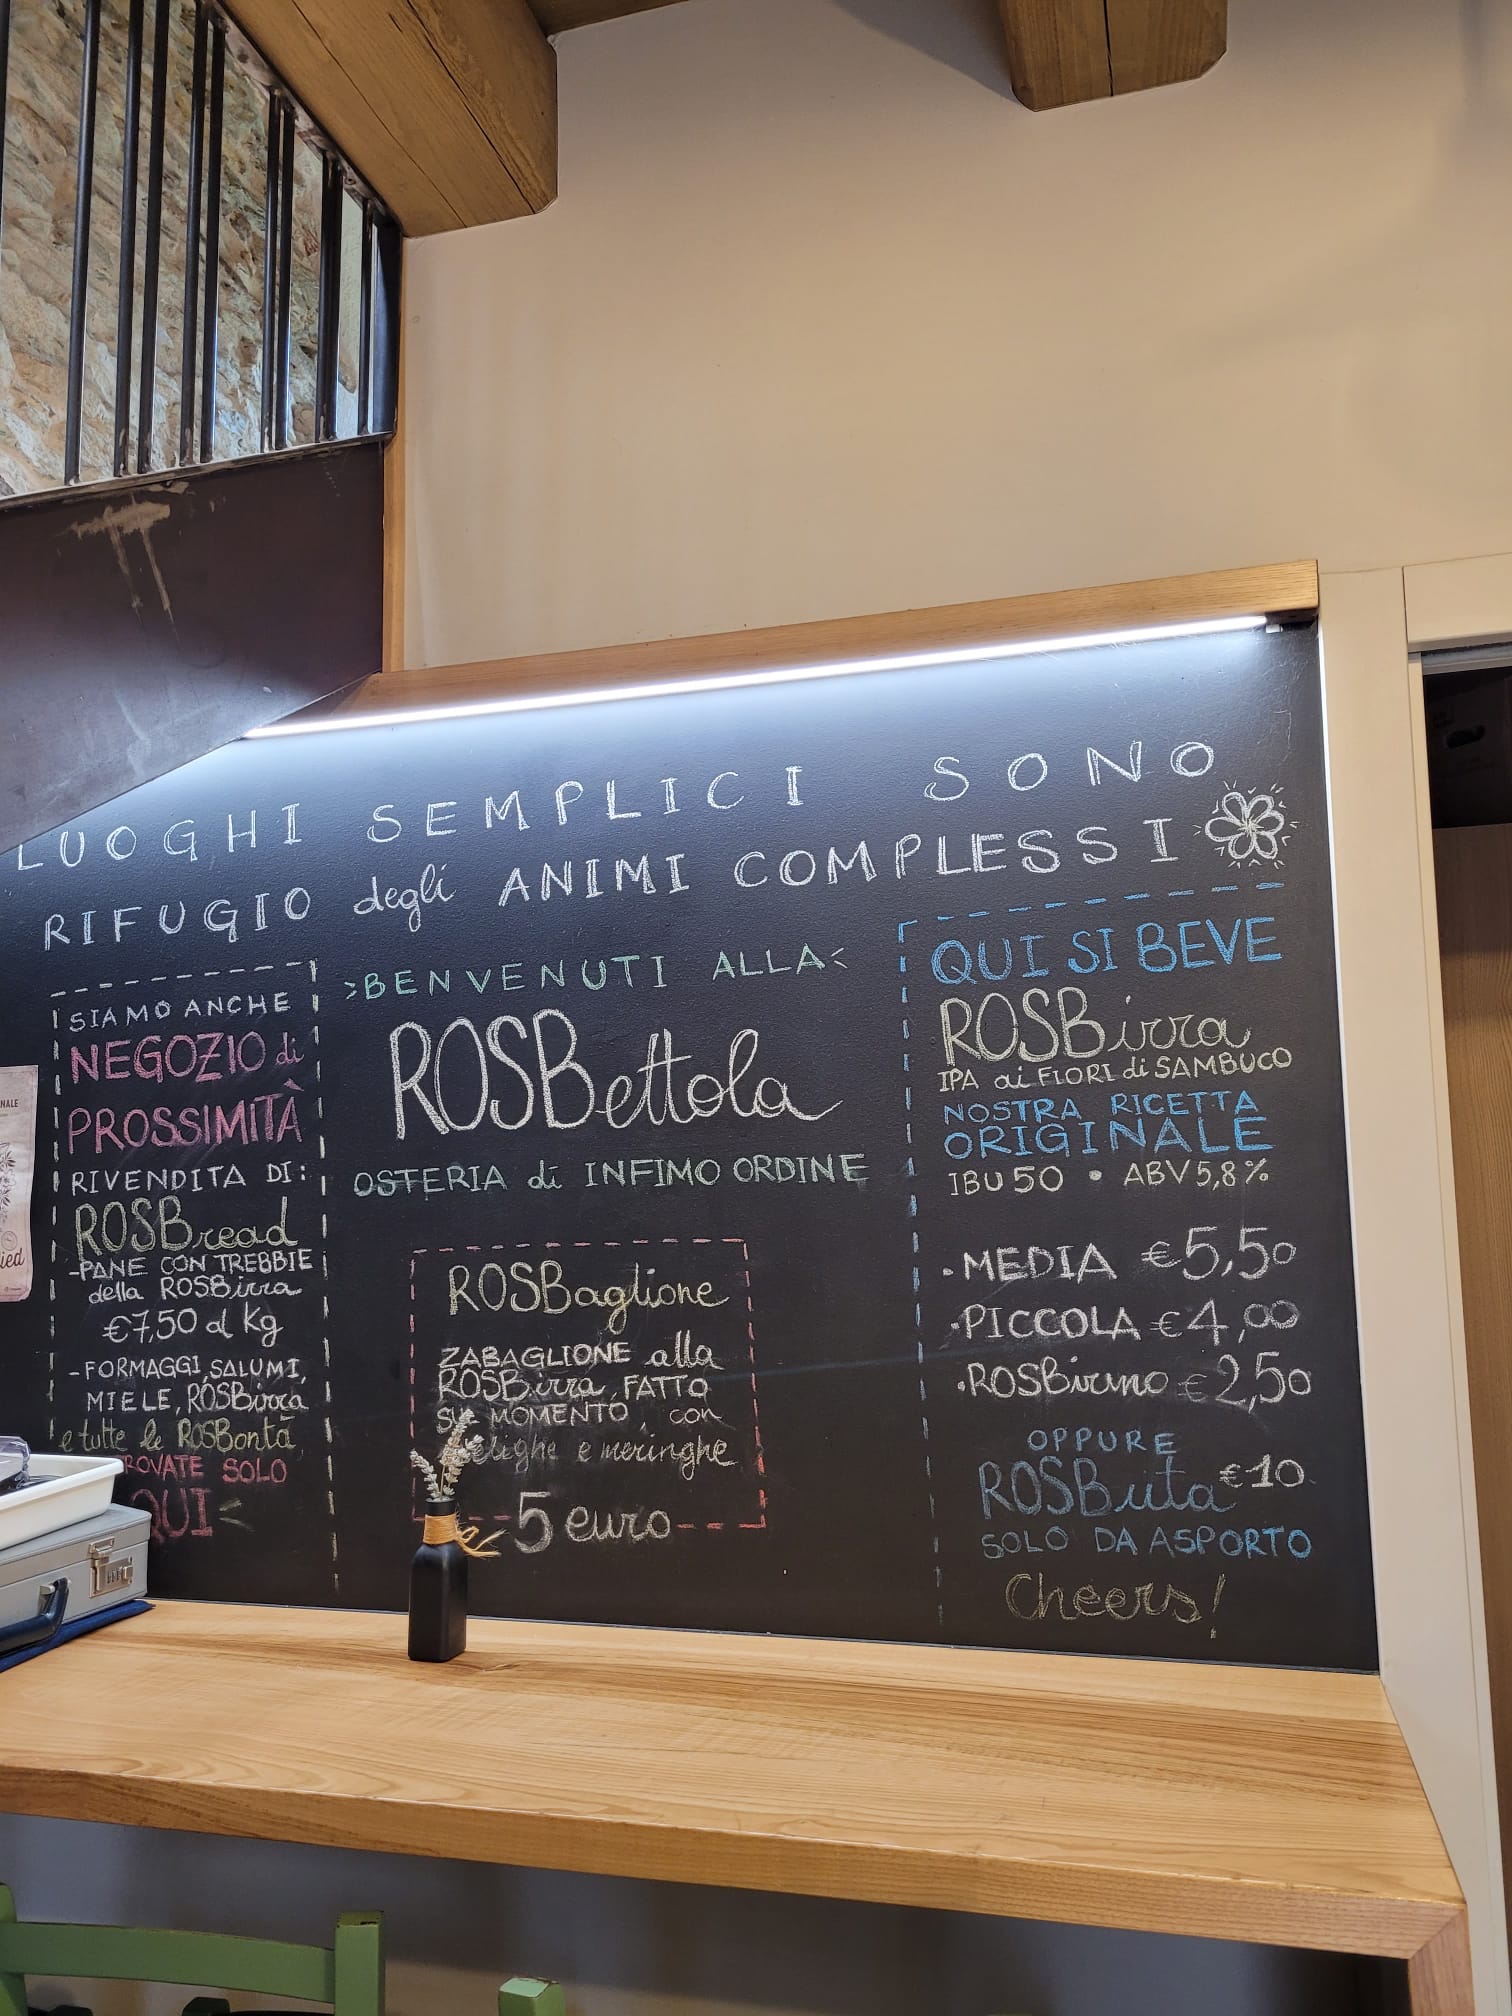 LUOGHI SEMPLICI SONO
RIFUGIO degli ANIMI COMPLESSI
SIAMO ANCHE
NEGOZIO di
PROSSIMITÀ
RIVENDITA DI:
ROSBread
-PANE CON TREBBIE
della ROSBirra
€7,50 al Kg
-FORMAGGI, SALUMI,
MIELE, ROSBirra
e tutte le ROSBontà
ROVATE SOLO
QUI
>BENVENUTI ALLA<
ROSBettola
OSTERIA di INFIMO ORDINE
ROSBaglione
ZABAGLIONE alla
ROSBirra, FATTO
SUL MOMENTO, con
e meringhe
5 euro
QUI SI BEVE
ROSBirra
IPA ai FIORI di SAMBUCO
NOSTRA RICETTA
ORIGINALE
IBU 50 • ABV 5,8%
·MEDIA €5,50
·PICCOLA €4,00
·ROSBirino €2,50
OPPURE
ROSButa €10
SOLO DA ASPORTO
Cheers!